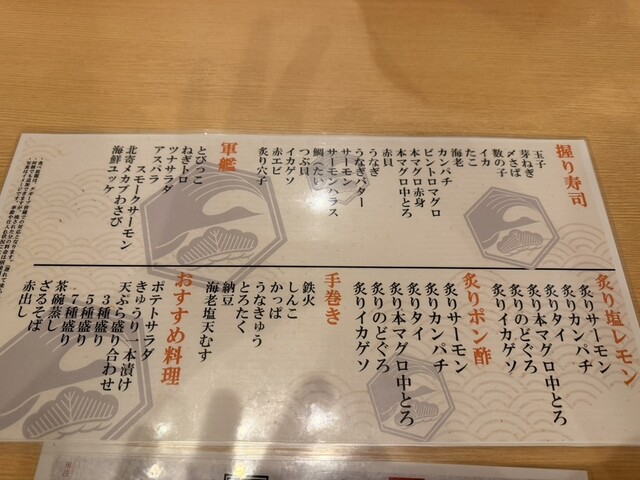 握り寿司
玉子
芽ねぎ
〆さば
数の子
イカ
たこ
海老
カンパチ
ビントロマグロ
本マグロ赤身
本マグロ中とろ
赤貝
うなぎ
うなぎバター
サーモン
サーモンハラス
鯛(たい)
つぶ貝
イカゲソ
赤エビ
炙り穴子
軍艦
とびっこ
ねぎトロ
ツナサラダ
アスパラ
スモークサーモン
北寄メカブわさび
海鮮ユッケ
炙り塩レモン
炙りサーモン
炙りカンパチ
炙りタイ
炙り本マグロ中とろ
炙りのどぐろ
炙りイカゲソ
炙りポン酢
炙りサーモン
炙りカンパチ
炙りタイ
炙り本マグロ中とろ
炙りのどぐろ
炙りイカゲソ
手巻き
鉄火
しんこ
かっぱ
うなきゅう
とろたく
納豆
海老塩天むす
おすすめ料理
ポテトサラダ
きゅうり一本漬け
天ぷら盛り合わせ
3種盛り
5種盛り
7種盛り
茶碗蒸し
ざるそば
赤出し